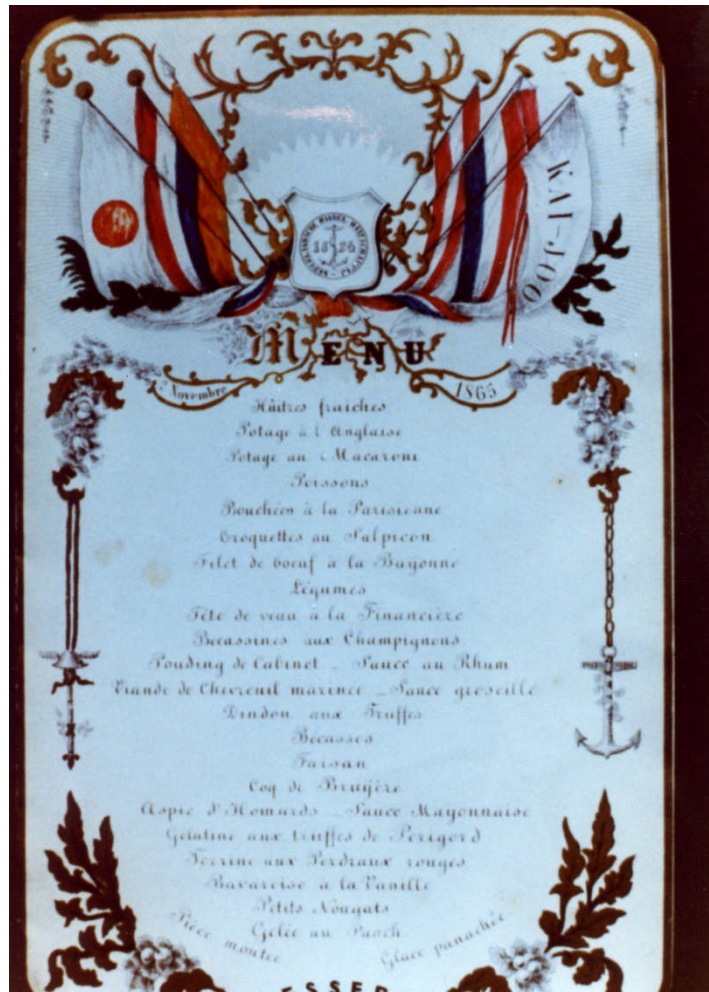 KAI-JOO
NEDERLANDSCHE HANDEL MAATSCHAPPIJ
1824
MENU
Novembre 1865
Huîtres fraîches
Potage à l'Anglaise
Potage au Macaroni
Poissons
Bouchées à la Parisienne
Croquettes au Salpicon
Filet de boeuf à la Bayonne
Légumes
Tête de veau à la Financière
Becassines aux Champignons
Pouding de Cabinet - Sauce au Rhum
Viande de Chevreuil marinée - Sauce groseille
Dindon aux Truffes
Becasses
Faisan
Coq de Bruyère
Aspic d'Homards - Sauce Mayonnaise
Gelatine aux truffes de Perigord
Terrine aux Perdraux rouges
Bavaroise à la Vanille
Petits Nougats
Gelée au Punch
Pièce montée
Glace panachée